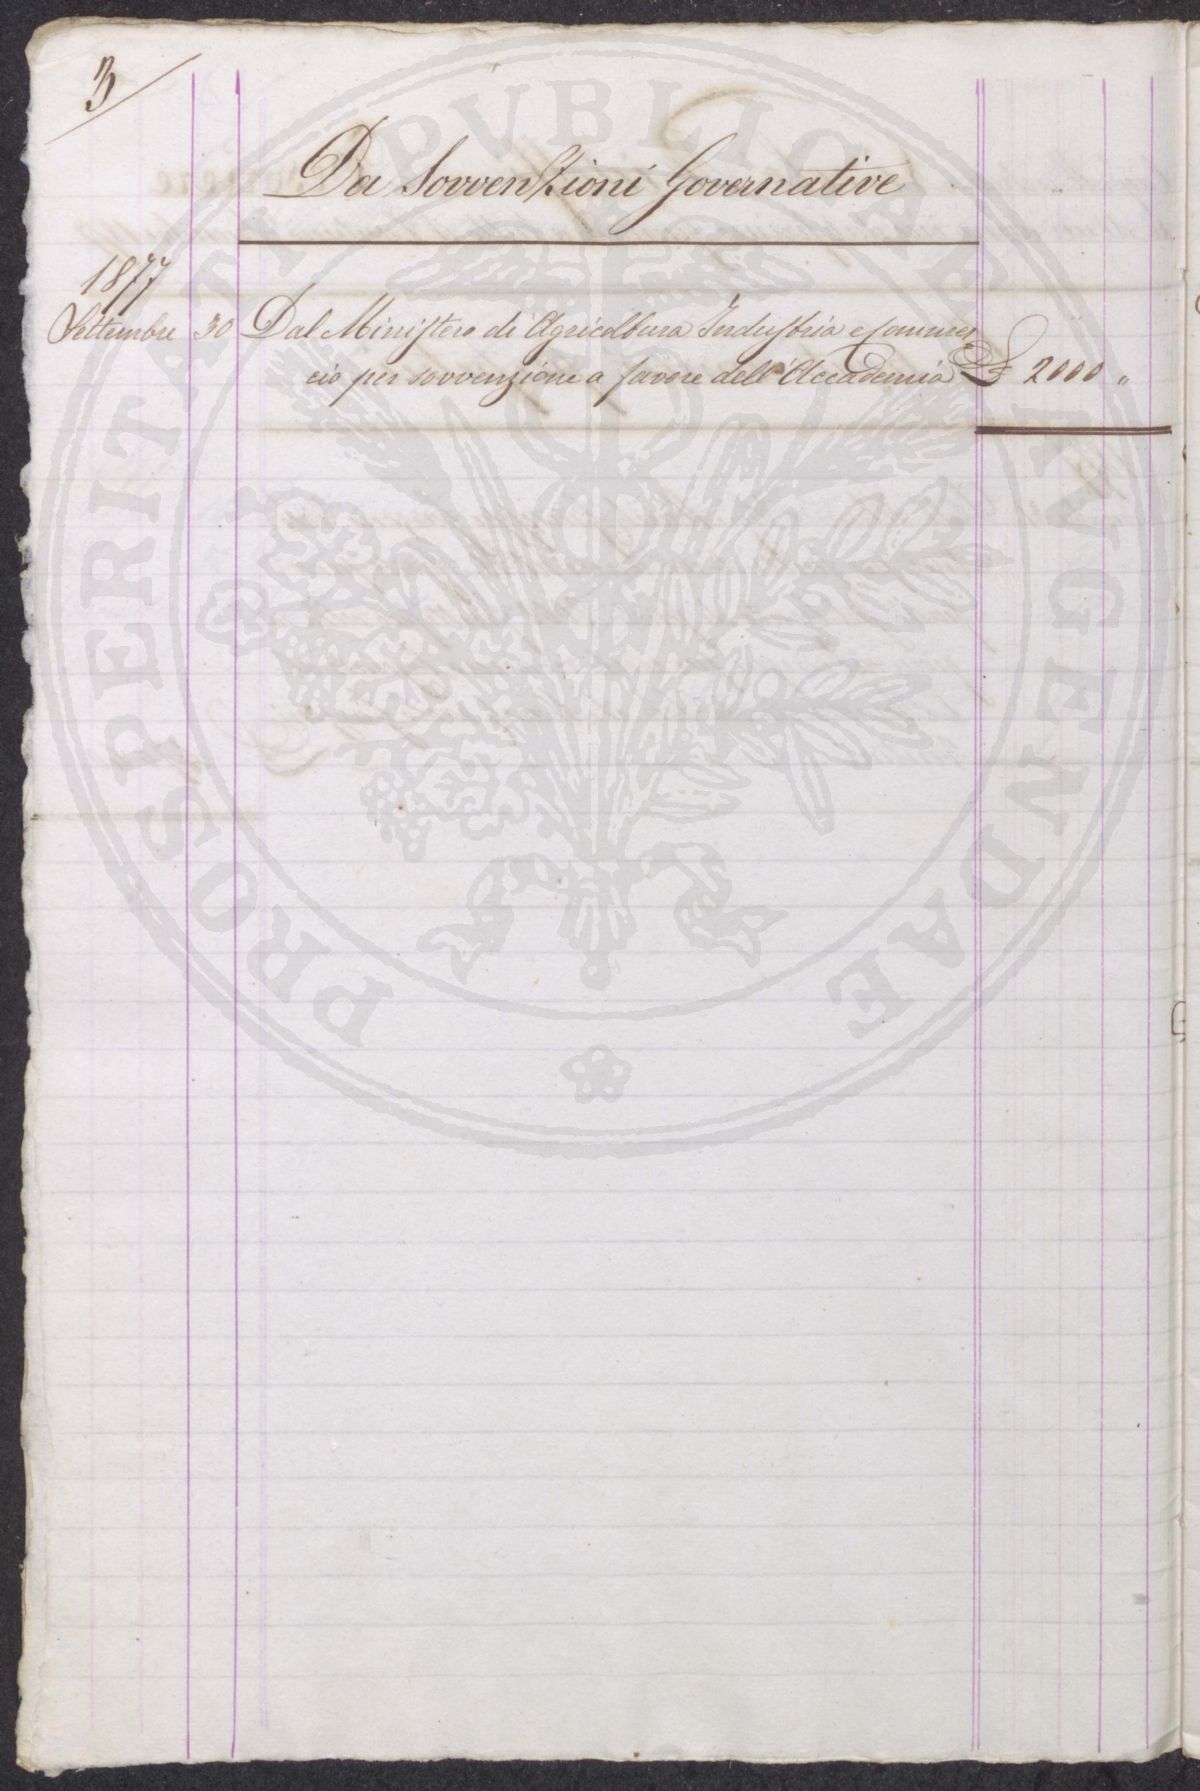 3
Da Sovvenzioni Governative
1877
Settembre 30 Dal Ministero di Agricoltura Industria e Commer
cio per sovvenzione a favore dell'Accademia £ 2000 "
PROSPERITATI PUBLICAE AUGENDAE